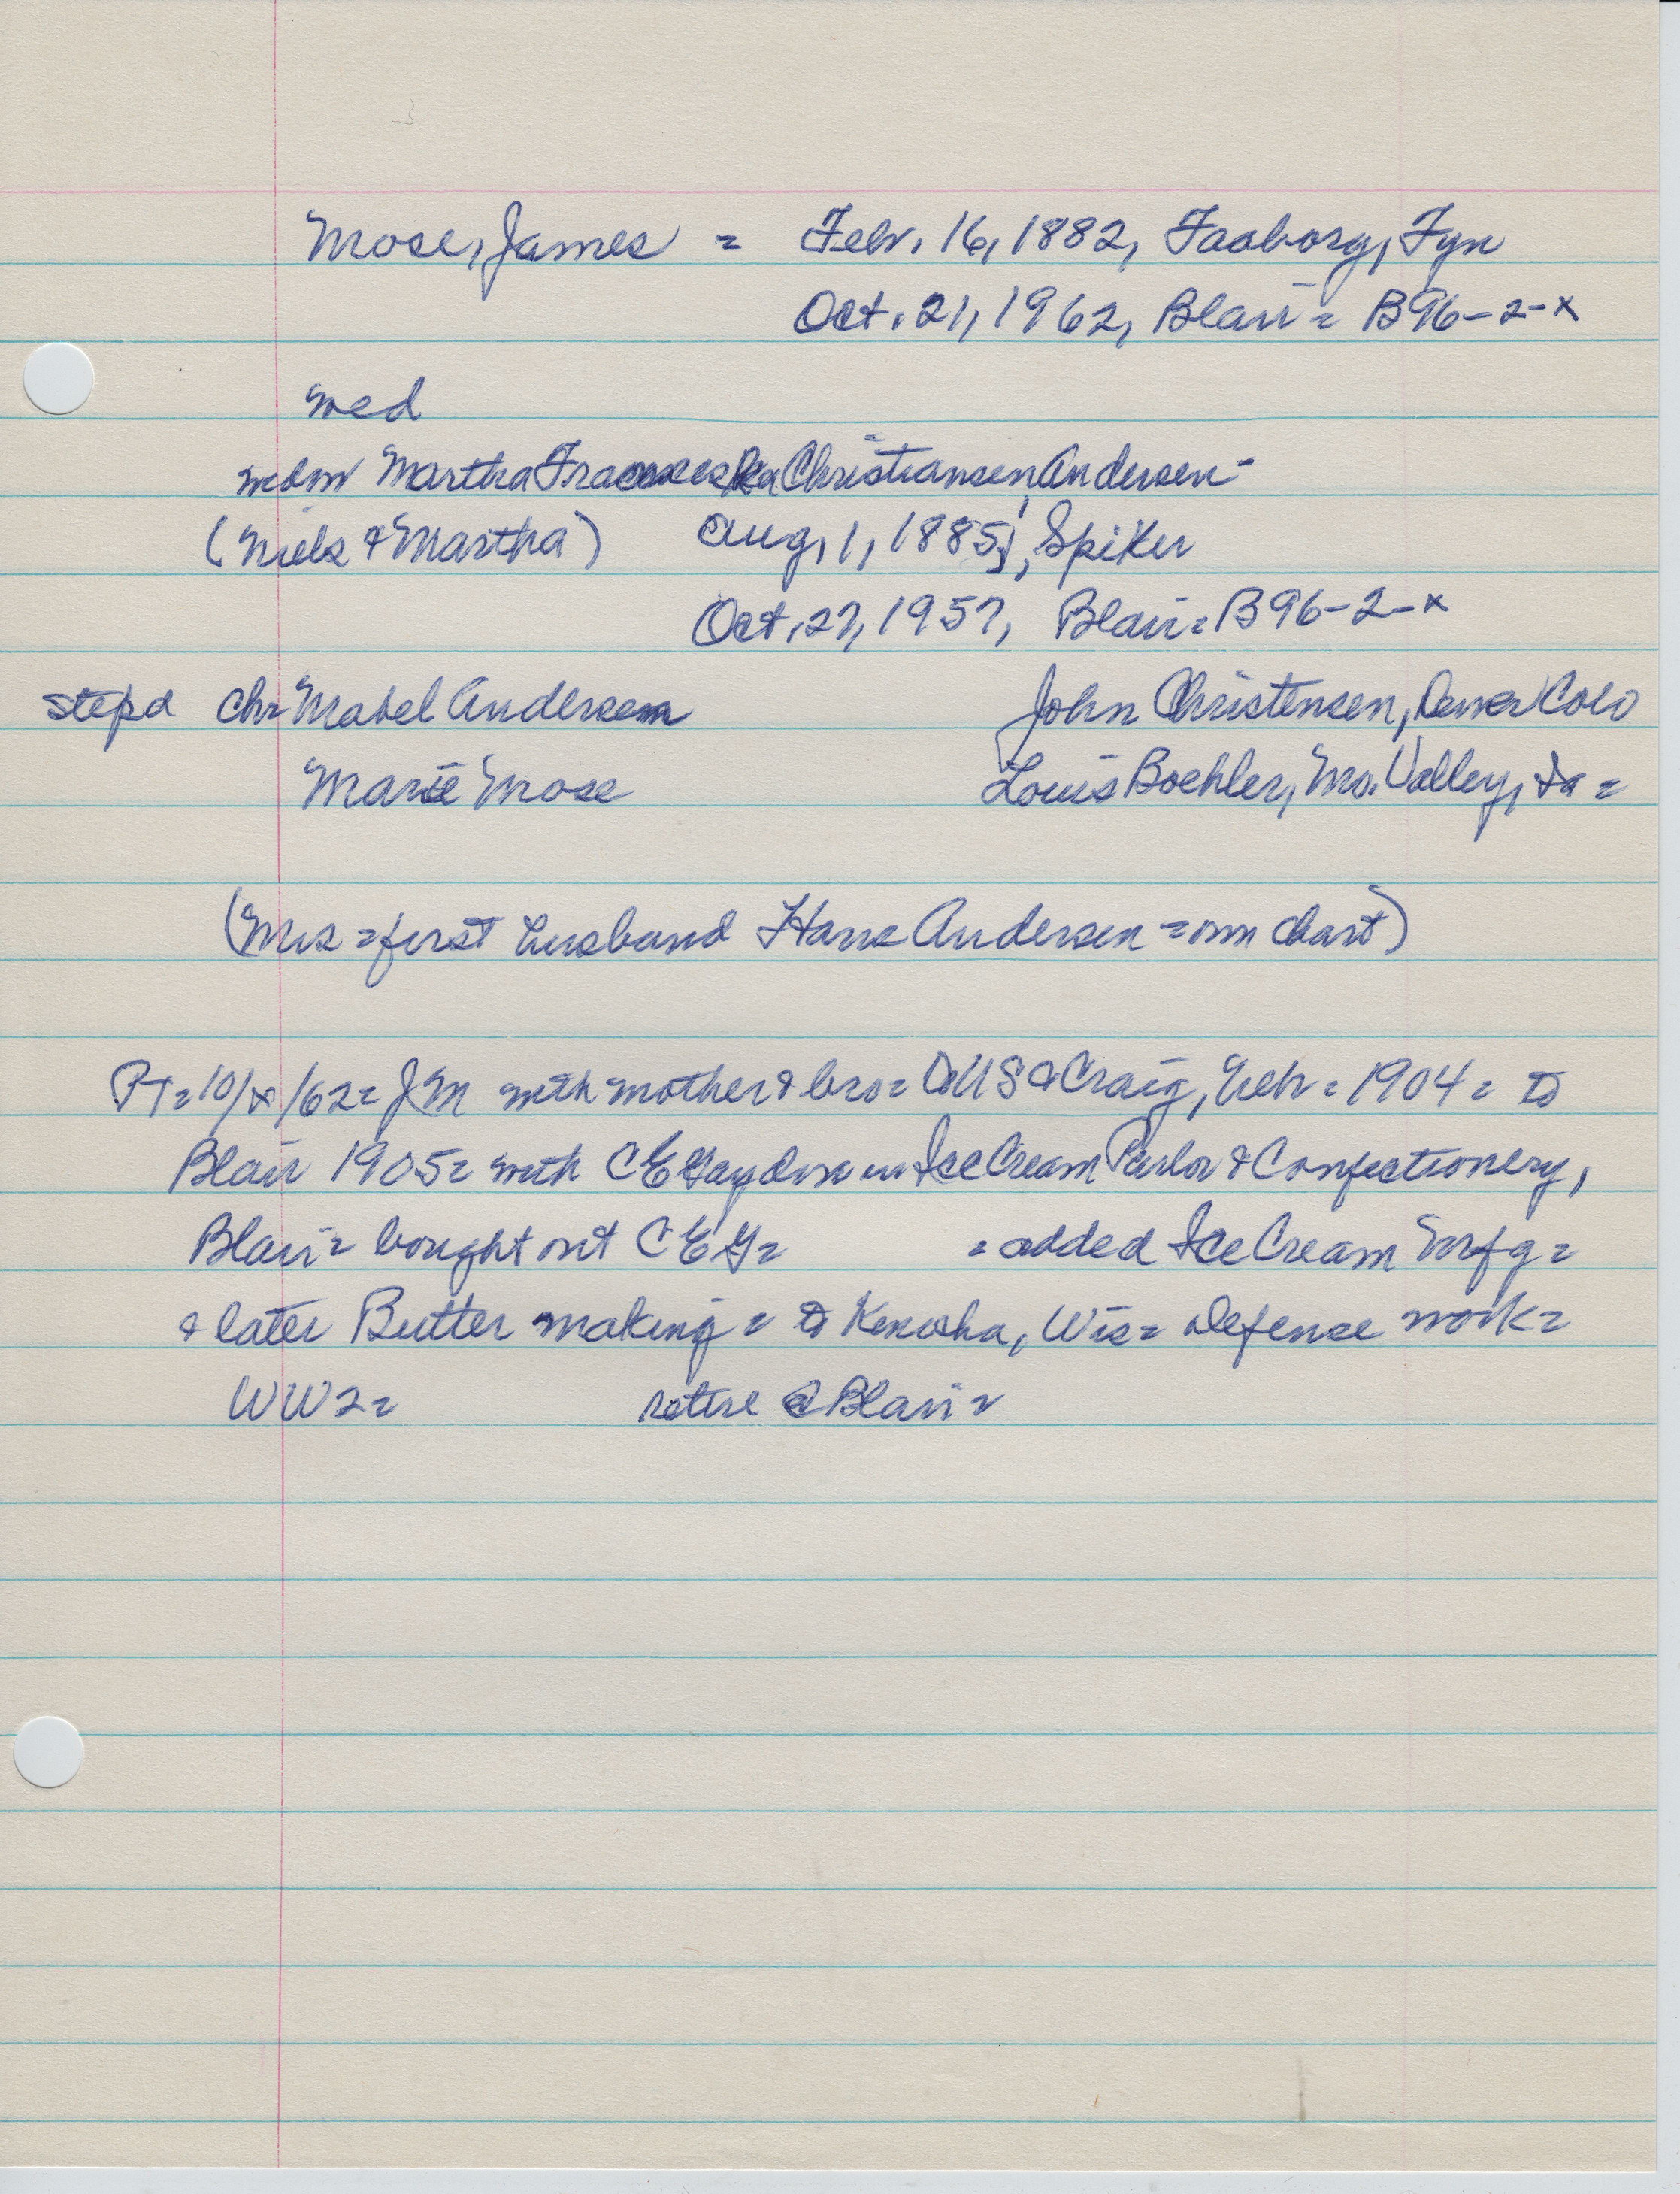 Mose, James = Febr. 16, 1882, Faaborg, Fyn
Oct. 21, 1962, Blair = B96-2-x
wed
Martha Christiansen Andersen -
(Niels & Martha) Aug, 1, 1885, Spiker
Oct. 27, 1957, Blair = B96-2-x
stepd chr Mabel Andersen John Christensen, Denver Colo
Marie Mose Louis Boehler, Mo. Valley, Ia =
(Mrs = first husband Hans Andersen = own chart)
PT = 10/x/62 = JM with mother & bro = US @ Craig, Nebr = 1904 = to
Blair 1905 = with C E in Ice Cream Parlor & Confectionery,
Blair = bought out C E G = = added Ice Cream Mnfg =
& later Butter making = to Kenosha, Wis = Defense work =
WW2 = retire @ Blair =